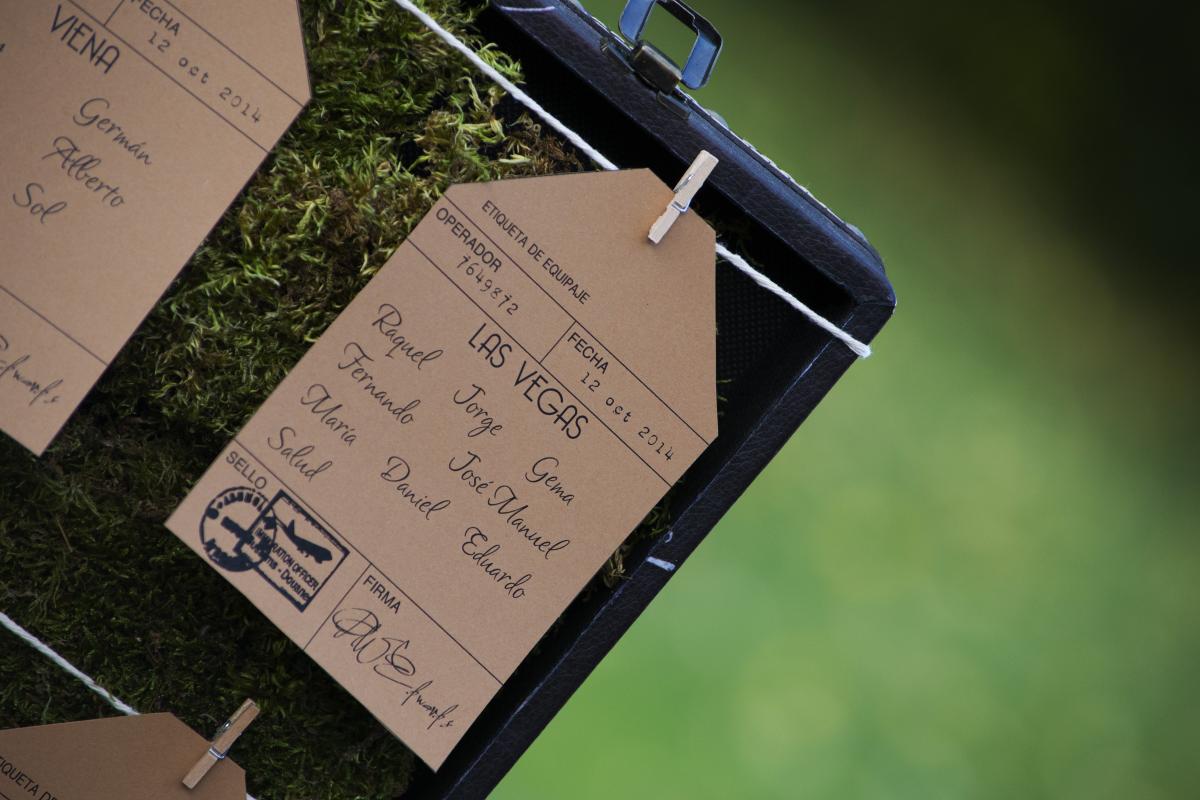 FECHA
12 oct 2014
VIENA
Germán
Alberto
Sol
ETIQUETA DE EQUIPAJE
OPERADOR
7649872
FECHA
12 oct 2014
LAS VEGAS
Raquel
Fernando
María
Salud
Jorge
Daniel
Gema
José Manuel
Eduardo
SELLO
OFFICER
Douane
FIRMA
ETIQUETA DE